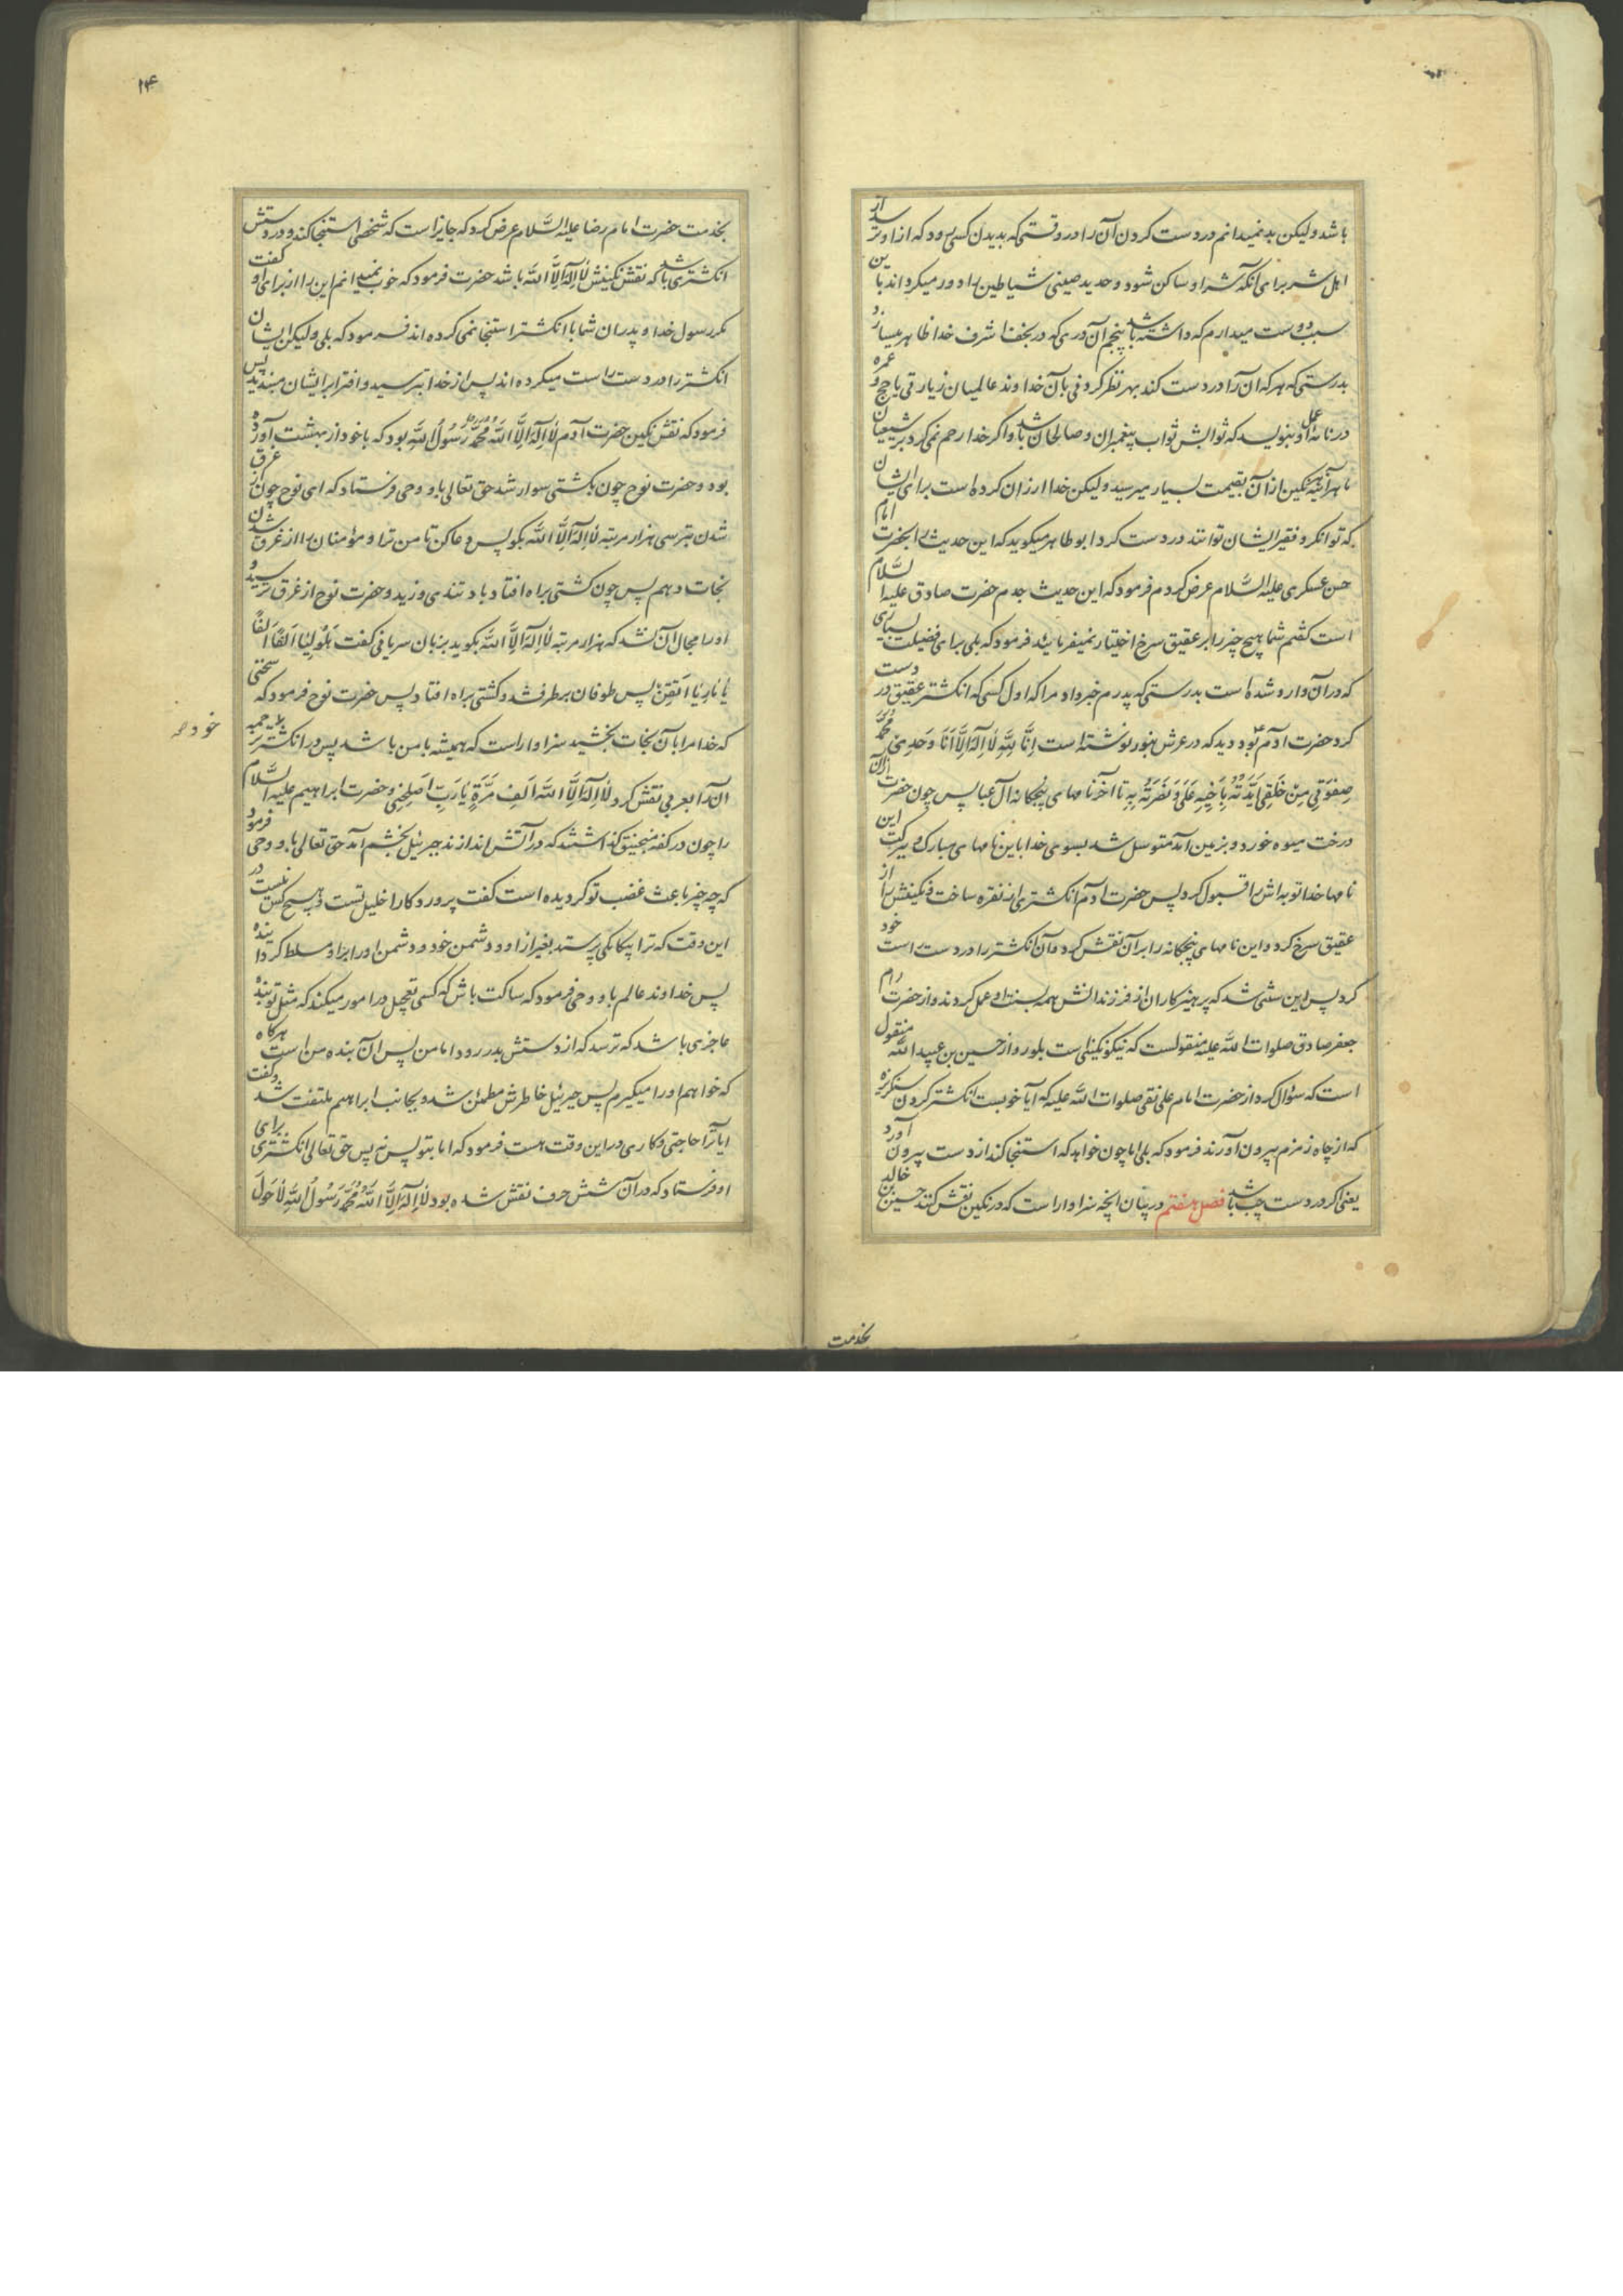 باشد ولیکن بد نمیدانم در دست کردن آن را در وقتی که بدیدن کسی رود که از او ترسد از
اهل شر برای آنکه شر او ساکن شود و حدید صینی شیاطین را دور میگرداند باین
سبب دوست میدارم که داشته باشد پنجم آن دری که در نجف اشرف خدا ظاهر میسازد
بدرستی که هر که آن را در دست کند بهر نظر کردنی بآن خداوند عالمیان زیارتی یا حج و عمره
در نامه عمل او بنویسد که ثوابش ثواب پیغمبران و صالحان باشد و اگر خدا رحم نمی کرد بر شیعیان
ما هر آینه نگین از آن بقیمت بسیار میرسید ولیکن خدا ارزان کرده است برای ایشان
که توانگر و فقیر ایشان توانند در دست کرد ابوطاهر میگوید که این حدیث را بحضرت امام
حسن عسکری علیه السلام عرض کردم فرمود که این حدیث جدم حضرت صادق علیه السلام
است گفتم شما هیچ چیز را بر عقیق سرخ اختیار نمیفرمائید فرمود که بلی برای فضیلت بسیاری
که در آن وارد شده است بدرستی که پدرم خبر داد مرا که اول کسی که انگشتر عقیق در دست
کرد حضرت آدم بود دید که در عرش بنور نوشته است انا لله لا اله الا انا وحدی محمد
صفوتی من خلقی ایدته باخیه علی و نصرته به تا آخر نامهای پنجگانه آل عبا پس چون حضرت از آن
درخت میوه خورد و بزمین آمد متوسل شد بسوی خدا باین نامهای مبارک و ببرکت این
نامها خدا توبه اش را قبول کرد پس حضرت آدم انگشتری از نقره ساخت و نگینش را از
عقیق سرخ کرد و این نامهای پنجگانه را بر آن نقش کرد و آن انگشتر را در دست راست خود
کرد پس این سنتی شد که پرهیزکاران از فرزندانش همه بسنت او عمل کردند و از حضرت امام
جعفر صادق صلوات الله علیه منقولست که نیکو نگینی است بلور و از حسین بن عبید الله منقول
است که سؤال کرد از حضرت امام علی نقی صلوات الله علیه که آیا خوبست انگشتر کردن سنگریزه
که از چاه زمزم بیرون آورند فرمود که بلی اما چون خواهد که استنجا کند از دست بیرون آورد
یعنی اگر در دست چپ باشد فصل هفتم در بیان آنچه سزاوار است که در نگین نقش کنند حسین بن خالد
بخدمت
۱۴
بخدمت حضرت امام رضا علیه السلام عرض کرد که جایز است که شخصی استنجا کند و در دستش
انگشتری باشد که نقش نگینش لا اله الا الله باشد حضرت فرمود که خوب نمیدانم این را از برای او گفت
مگر رسول خدا و پدران شما با انگشتر استنجا نمی کرده اند فرمود که بلی ولیکن ایشان
انگشتر را در دست راست میکرده اند پس از خدا بترسید و افترا بر ایشان مبندید پس
فرمود که نقش نگین حضرت آدم لا اله الا الله محمد رسول الله بود که با خود از بهشت آورده
بود و حضرت نوح چون بکشتی سوار شد حق تعالی باو وحی فرستاد که ای نوح چون از غرق
شدن بترسی هزار مرتبه لا اله الا الله بگو پس دعا کن تا من ترا و مؤمنان را از غرق شدن
نجات دهم پس چون کشتی براه افتاد باد تندی وزید و حضرت نوح از غرق ترسید و
او را مجال آن نشد که هزار مرتبه لا اله الا الله بگوید بزبان سریانی گفت هلولیا الفا الفا
یا ماریا اتقن پس طوفان برطرف شد و کشتی براه افتاد پس حضرت نوح فرمود که سخنی
که خدا مرا بآن نجات بخشید سزاوار است که همیشه با من باشد پس در انگشتر ترجمه
خود
آن را بعربی نقش کرد لا اله الا الله الف مرة یا رب اصلحنی و حضرت ابراهیم علیه السلام
را چون در کفه منجنیق گذاشتند که در آتش اندازند جبرئیل بخشم آمد حق تعالی باو وحی فرمود
که چه چیز باعث غضب تو گردیده است گفت پروردگارا خلیل تست و هیچ کس نیست در
این وقت که ترا بیگانگی پرستد بغیر از او و دشمن خود و دشمن او را بر او مسلط کرده
پس خداوند عالم باو وحی فرمود که ساکت باش که کسی تعجیل در امور میکند که مثل تو بنده
عاجزی باشد که ترسد که از دستش بدر رود اما من پس آن بنده من است هرگاه
که خواهم او را میگیرم پس جبرئیل خاطرش مطمئن شد و بجانب ابراهیم ملتفت شد و گفت
آیا ترا حاجتی و کاری در این وقت هست فرمود که اما بتو پس نه پس حق تعالی انگشتری برای
او فرستاد که در آن شش حرف نقش شده بود لا اله الا الله محمد رسول الله لا حول